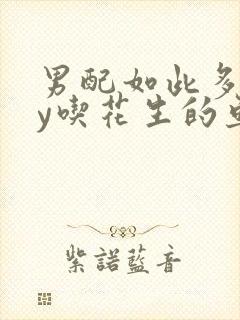 男配如此多
y喫花生的
紫諾藍音